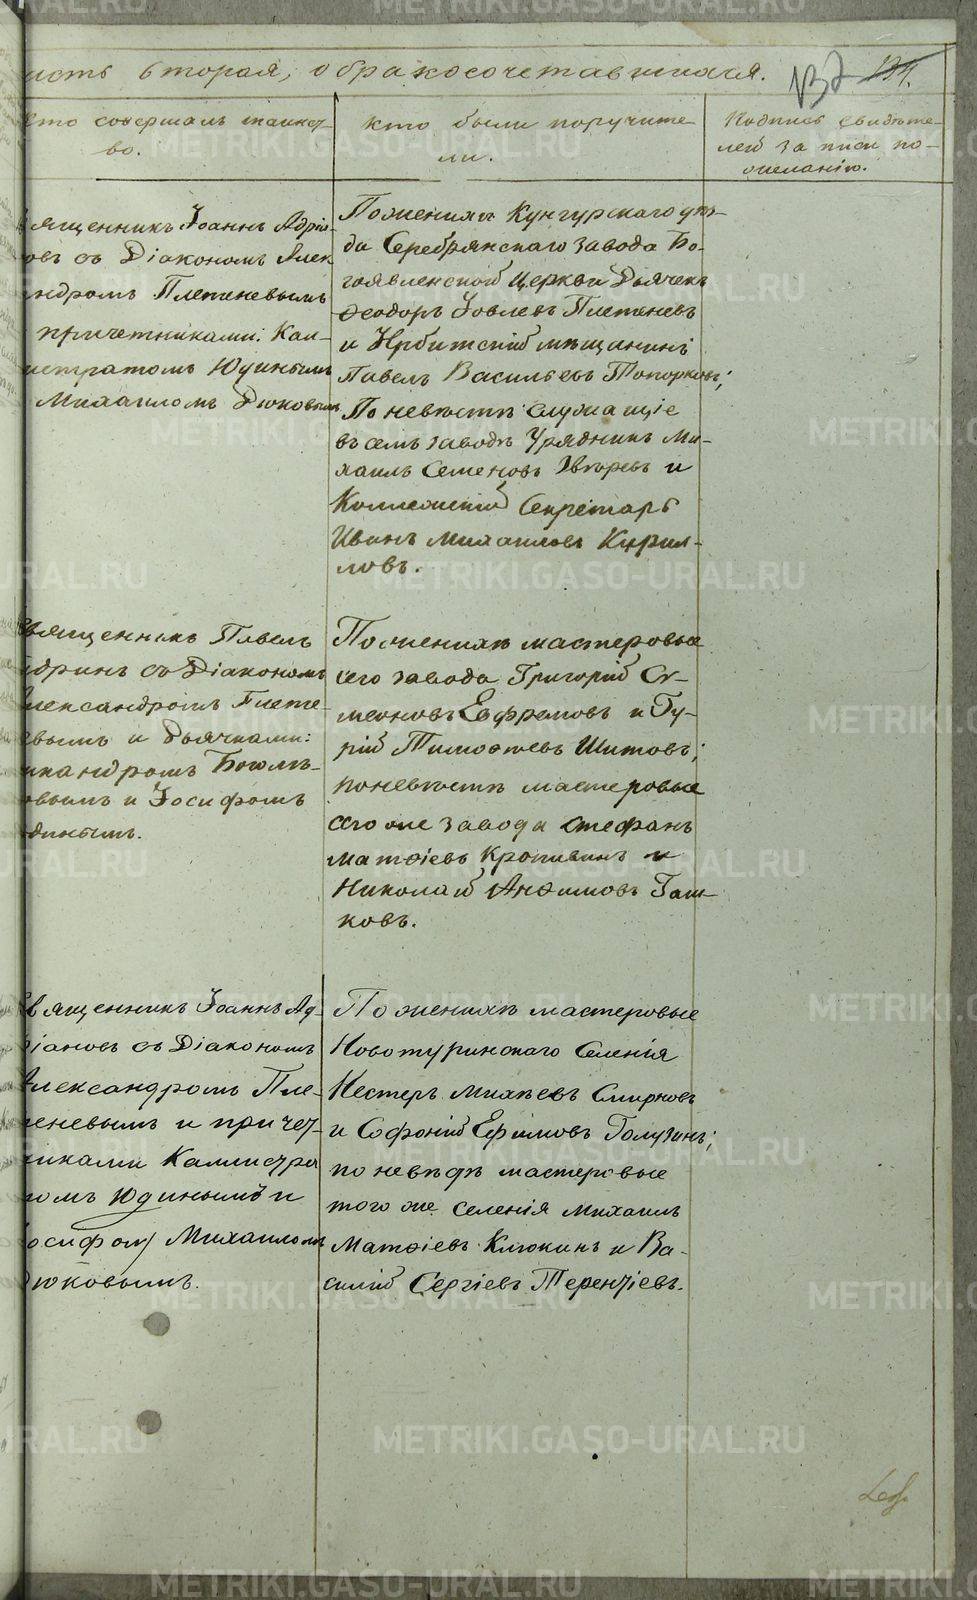 исть вторая, о бракосочетавшихся.
132 134.
Кто совершалъ таинст-
во.
Кто были поручите
ли.
Подпись свидѣте-
лей записи по-
желанію.
вященникъ Іоаннъ Адріа-
овъ съ Діакономъ Алек
ндромъ Плетеневымъ
причетниками: Кал-
истратомъ Юдинымъ
Михаиломъ Дюковымъ
По женихѣ Кунгурскаго уѣз-
да Серебрянскаго завода Бо-
гоявленской церкви Дьячекъ
Ѳеодоръ Іовлевъ Плетеневъ
и Ирбитскій мѣщанинъ
Павелъ Васильевъ Топорковъ;
По невѣстѣ: служащіе
въ семъ заводѣ Урядникъ Ми-
хаилъ Семеновъ Звѣревъ и
Коллежскій Секретарь
Иванъ Михаиловъ Кирил-
ловъ.
вященникъ Павелъ
дринъ съ Діакономъ
лександромъ Плете-
евымъ и Дьячками:
икандромъ Богом-
овымъ и Іосифомъ
динымъ.
По женихѣ мастеровые
сего завода Григорій Си-
меоновъ Евфремовъ и Гу-
рій Тимоѳеевъ Шитовъ;
по невѣстѣ мастеровые
сего же завода Стефанъ
Матѳіевъ Кропивинъ и
Николай Анѳимовъ Гаш-
ковъ.
вященникъ Іоаннъ Ад-
ріановъ съ Діакономъ
Александромъ Пле-
теневымъ и причет-
никами Каллистра
томъ Юдинымъ и
Іосифом Михаиломъ
Дюковымъ.
По женихѣ мастеровые
Новотуринскаго Селенія
Нестеръ Михѣевъ Смирновъ
и Софоній Ефимовъ Голузинъ;
по невѣстѣ мастеровые
того же селенія Михаилъ
Матѳіевъ Клюкинъ и Ва-
силій Сергіевъ Терентіевъ.
METRIKI.GASO-URAL.RU